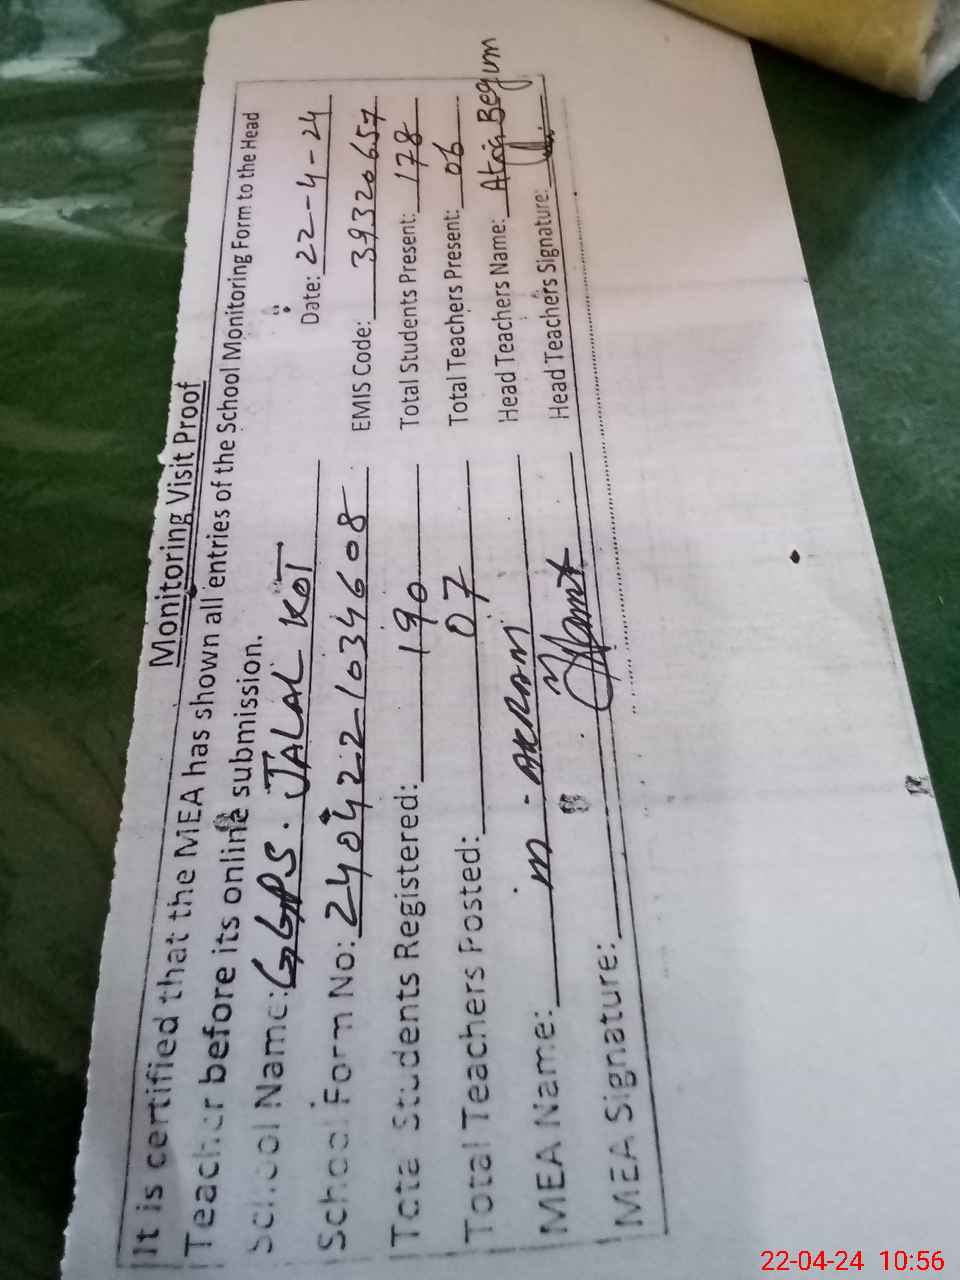 Monitoring Visit Proof
It is certified that the MEA has shown all entries of the School Monitoring Form to the Head
Teacher before its online submission.
School Name: GGPS. JALAL KOT Date: 22-4-24
School Form No: 2404221034608 EMIS Code: 39320657
Total Students Registered: 190 Total Students Present: 178
Total Teachers Posted: 07 Total Teachers Present: 06
MEA Name: m - AKRAM Head Teachers Name: Begum
MEA Signature: Head Teachers Signature:
22-04-24 10:56